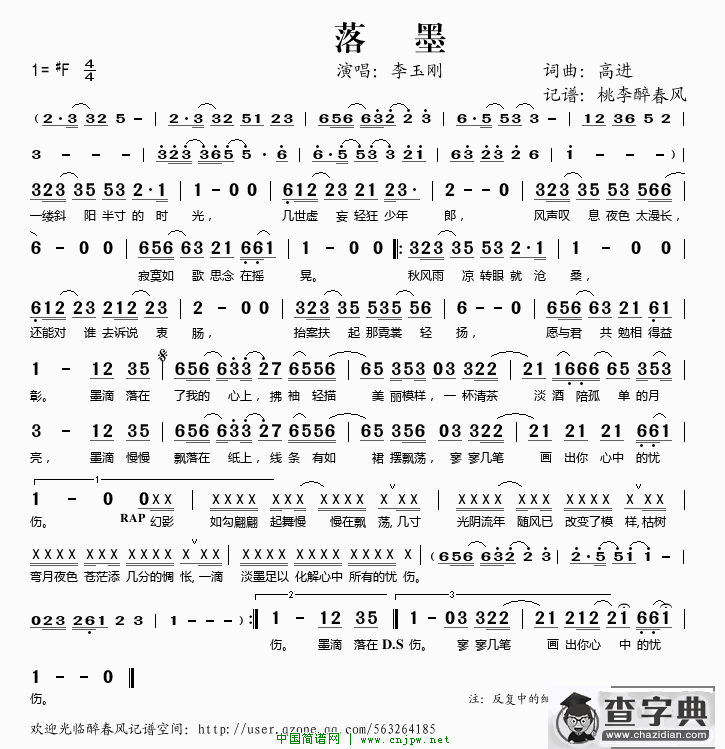 落 墨
1= #F 4/4 演唱: 李玉刚 词曲: 高进
记谱: 桃李醉春风
(2·3 32 5 - | 2·3 32 51 23 | 656 632 2 3 | 6·5 53 3 - | 12 36 5 2
3 - - - | 323 365 5 · 6 | 6·5 53 3 21 | 63 23 2 6 | 1 - - -)
323 35 53 2·1 | 1 - 0 0 | 612 23 21 23· | 2 - - 0 | 323 35 53 566
一缕斜 阳 半寸 的 时 光, 几世虚 妄 轻狂 少年 郎, 风声叹 息 夜色 太漫长,
6 - 0 0 | 656 63 21 661 | 1 - 0 0 |: 323 35 53 2·1 | 1 - 0 0
寂寞如 歌 思念 在摇 晃。 秋风雨 凉 转眼 就 沧 桑,
612 23 212 23 | 2 - 0 0 | 323 35 535 56 | 6 - 0 0 | 656 63 21 61
还能对 谁 去诉说 衷 肠, 抬案扶 起 那霓裳 轻 扬, 愿与君 共 勉相 得益
1 - 12 35 | 656 633 27 6556 | 65 353 03 322 | 21 1666 65 353
彰。 墨滴 落在 了我的 心上, 拂 袖 轻描 美 丽模样, 一 杯清茶 淡 酒 陪孤 单 的月
3 - 12 35 | 656 633 27 6556 | 65 356 03 322 | 21 21 21 661
亮, 墨滴 慢慢 飘落在 纸上, 线 条 有如 裙 摆飘荡, 寥 寥几笔 画 出你 心中 的忧
1
1 - 0 0XX | XXXX XXXX XXXX XX | XXXX XXXX XXXX XX
伤。 RAP 幻影 如勾翩翩 起舞慢 慢在飘 荡, 几寸 光阴流年 随风已 改变了模 样, 枯树
XXXX XXXX XXXX XX | XXXX XXXX XXXX X | (656 632 2 3 | 2·5 51 1
弯月夜色 苍茫添 几分的惆 怅, 一滴 淡墨足以 化解心中 所有的忧 伤。
2 3
023 261 2 3 | 1 - - -) :| 1 - 12 35 | 1 - 03 322 | 21 212 21 661
伤。 墨滴 落在 D.S 伤。 寥 寥几笔 画 出你心 中 的忧
1 - - 0 ‖
伤。
注: 反复中的
欢迎光临醉春风记谱空间: http://user.qzone.qq.com/563264185
中国简谱网 www.cnjpw.net
查字典
www.chazidian.com